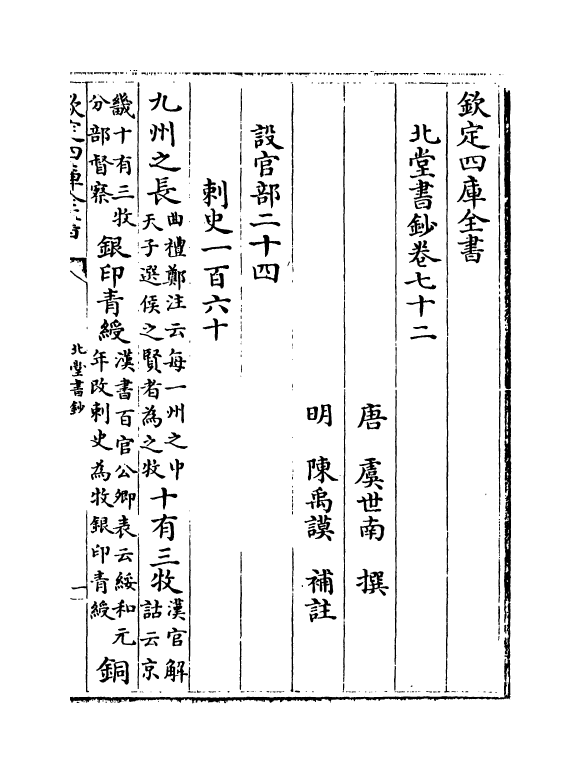 欽定四庫全書
北堂書鈔卷七十二
唐 虞世南 撰
明 陳禹謨 補註
設官部二十四
刺史一百六十
九州之長曲禮鄭注云每一州之中天子選侯之賢者為之牧十有三牧漢官解詁云京
畿十有三牧分部督察銀印青綬漢書百官公卿表云綏和元年改刺史為牧銀印青綬銅
北堂書鈔
一